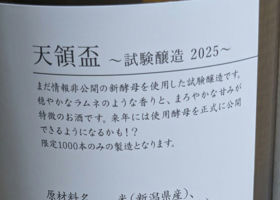 天領盃 ～試験醸造 2025～
まだ情報非公開の新酵母を使用した試験醸造です。
穏やかなラムネのような香りと、まろやかな甘みが
特徴のお酒です。来年には使用酵母を正式に公開
できるようになるかも！？
限定1000本のみの製造となります。
原材料名　米(新潟県産)、